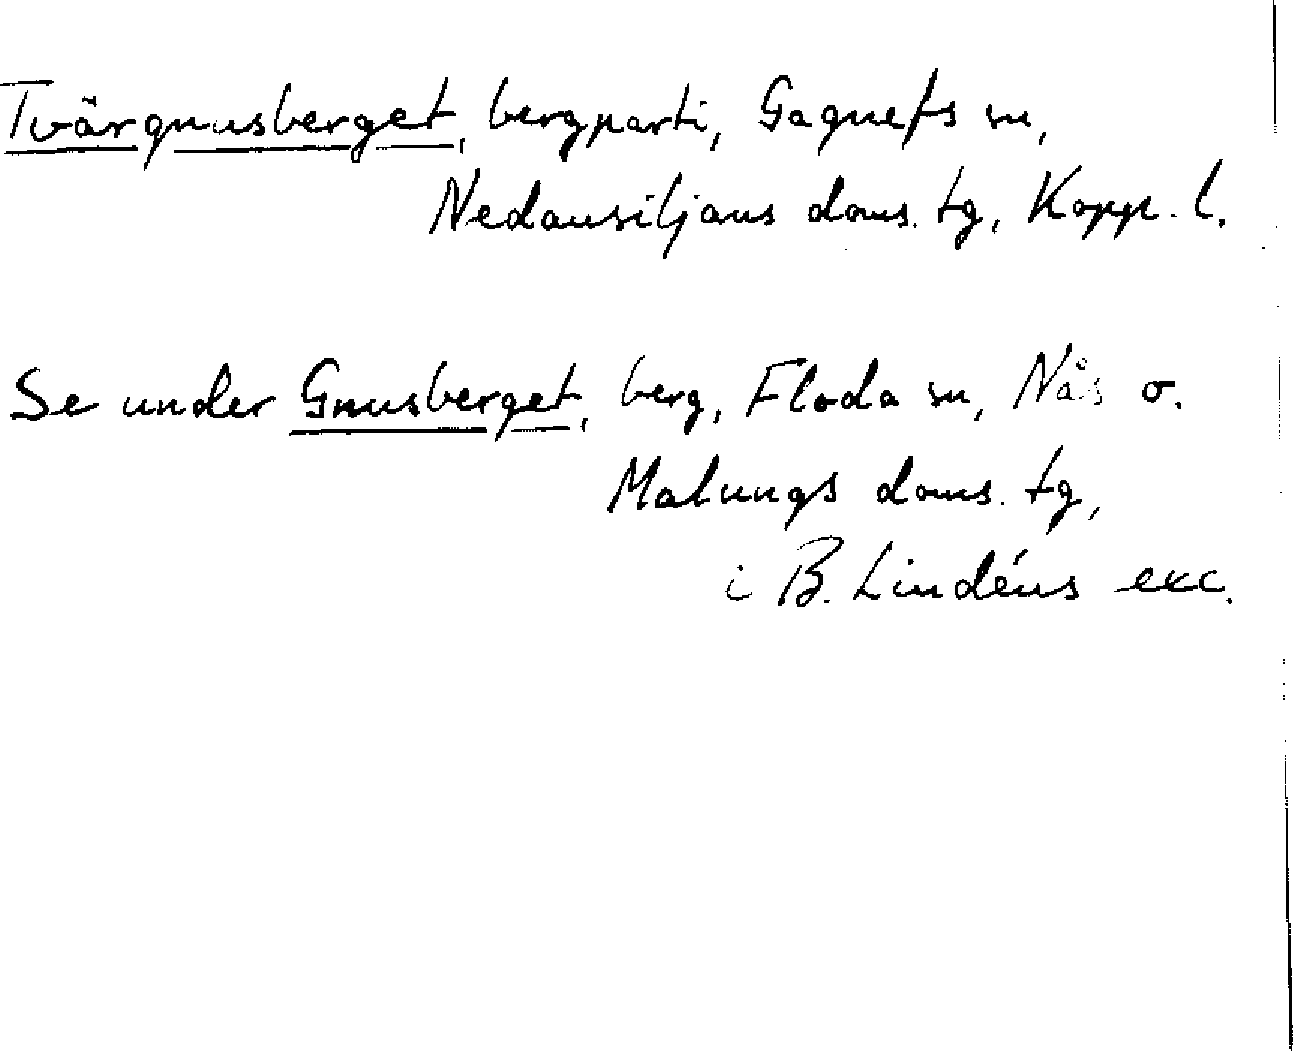 Tvärgnusberget, bergparti, Gagnefs sn,
Nedansiljans doms. tg, Kopp. l.
Se under Gnusberget, berg, Floda sn, Nås o.
Malungs doms. tg,
i B. Lindéns exc.